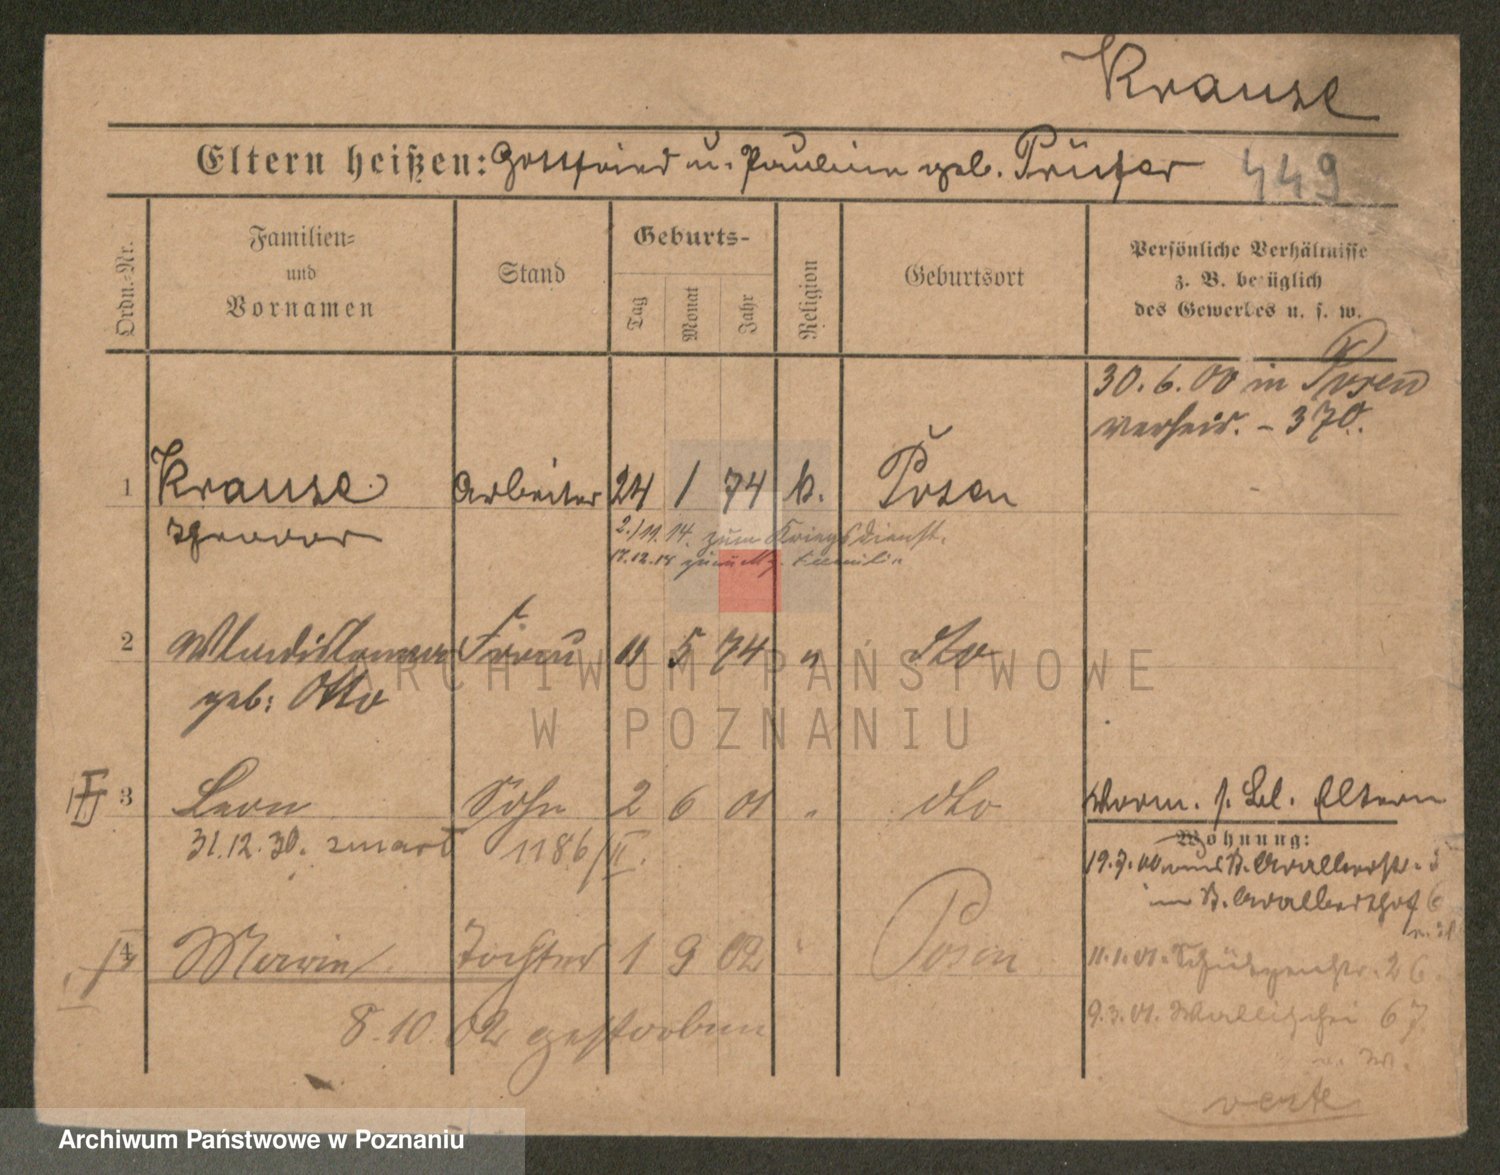 Krause
Eltern heißen: Gottfried u. Pauline geb. Prüfer 449
Ordn.-Nr.
Familien- und Vornamen
Stand
Geburts-
Tag
Monat
Jahr
Religion
Geburtsort
Persönliche Verhältnisse
z. B. bezüglich
des Gewerbes u. s. w.
30. 6. 00 in Posen
verheir. - 370.
1 Krause Arbeiter 24 1 74 k. Posen
Theodor
2./11. 14. zum Kriegsdienst.
17.12.18 Familie
2 Wladislawa Frau 11 5 74 " dto
geb: Otto
3 Leon Sohn 2 6 01 " dto
31.12.30. zmarł 1186/II.
Vorm. s. Bl. Eltern
Wohnung:
19.7.00 St. Adalbertstr.
St. Adalberthof 6
4 Marie Tochter 1 9 02 " Posen
8.10.02 gestorben
11.1.01. Schützenstr. 26.
9.3.01. Wallischei 67
verte
ARCHIWUM PAŃSTWOWE
W POZNANIU
Archiwum Państwowe w Poznaniu